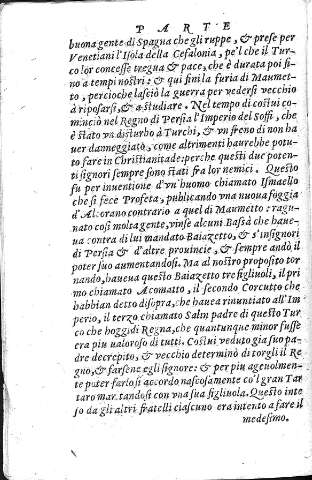 PARTE
buona gente di Spagna che gli ruppe, & prese per
Venetiani l'Isola della Cefalonia, pe'l che il Tur-
co lor concesse tregua & pace, che è durata poi si-
no a tempi nostri: & qui finì la furia di Maumet-
to, percioche lasciò la guerra per vedersi vecchio
à riposarsi, & a studiare. Nel tempo di costui co-
minciò nel Regno di Persia l'Imperio del Soffi, che
è stato vn disturbo à Turchi, & vn freno di non ha
uer danneggiato, come altrimenti haurebbe potu-
to fare in Christianitade: perche questi due poten-
ti signori sempre sono stati fra lor nemici. Questo
fu per inuentione d'vn'huomo chiamato Ismaello
che si fece Profeta, publicando vna nuoua foggia
d'Alcorano contrario a quel di Maumetto: ragu-
nato così molta gente, vinse alcuni Bassà che haue-
ua contra di lui mandato Baiazetto, & s'insignorì
di Persia & d'altre prouincie, & sempre andò il
poter suo aumentandosi. Ma al nostro proposito tor
nando, haueua questo Baiazetto tre figliuoli, il pri
mo chiamato Acomatto, il secondo Corcutto che
habbian detto disopra, che hauea rinuntiato all'Im
perio, il terzo chiamato Salin padre di questo Tur
co che hoggidì Regna, che quantunque minor fusse
era piu ualoroso di tutti. Costui veduto già suo pa-
dre decrepito, & vecchio determinò di torgli il Re
gno, & farsene egli signore: & per piu ageuolmen-
te poter farlo si accordò nascosamente co'l gran Tar
taro maritandosi con vna sua figliuola. Questo inte
so da gli altri fratelli ciascuno era intento a fare il
medesimo.